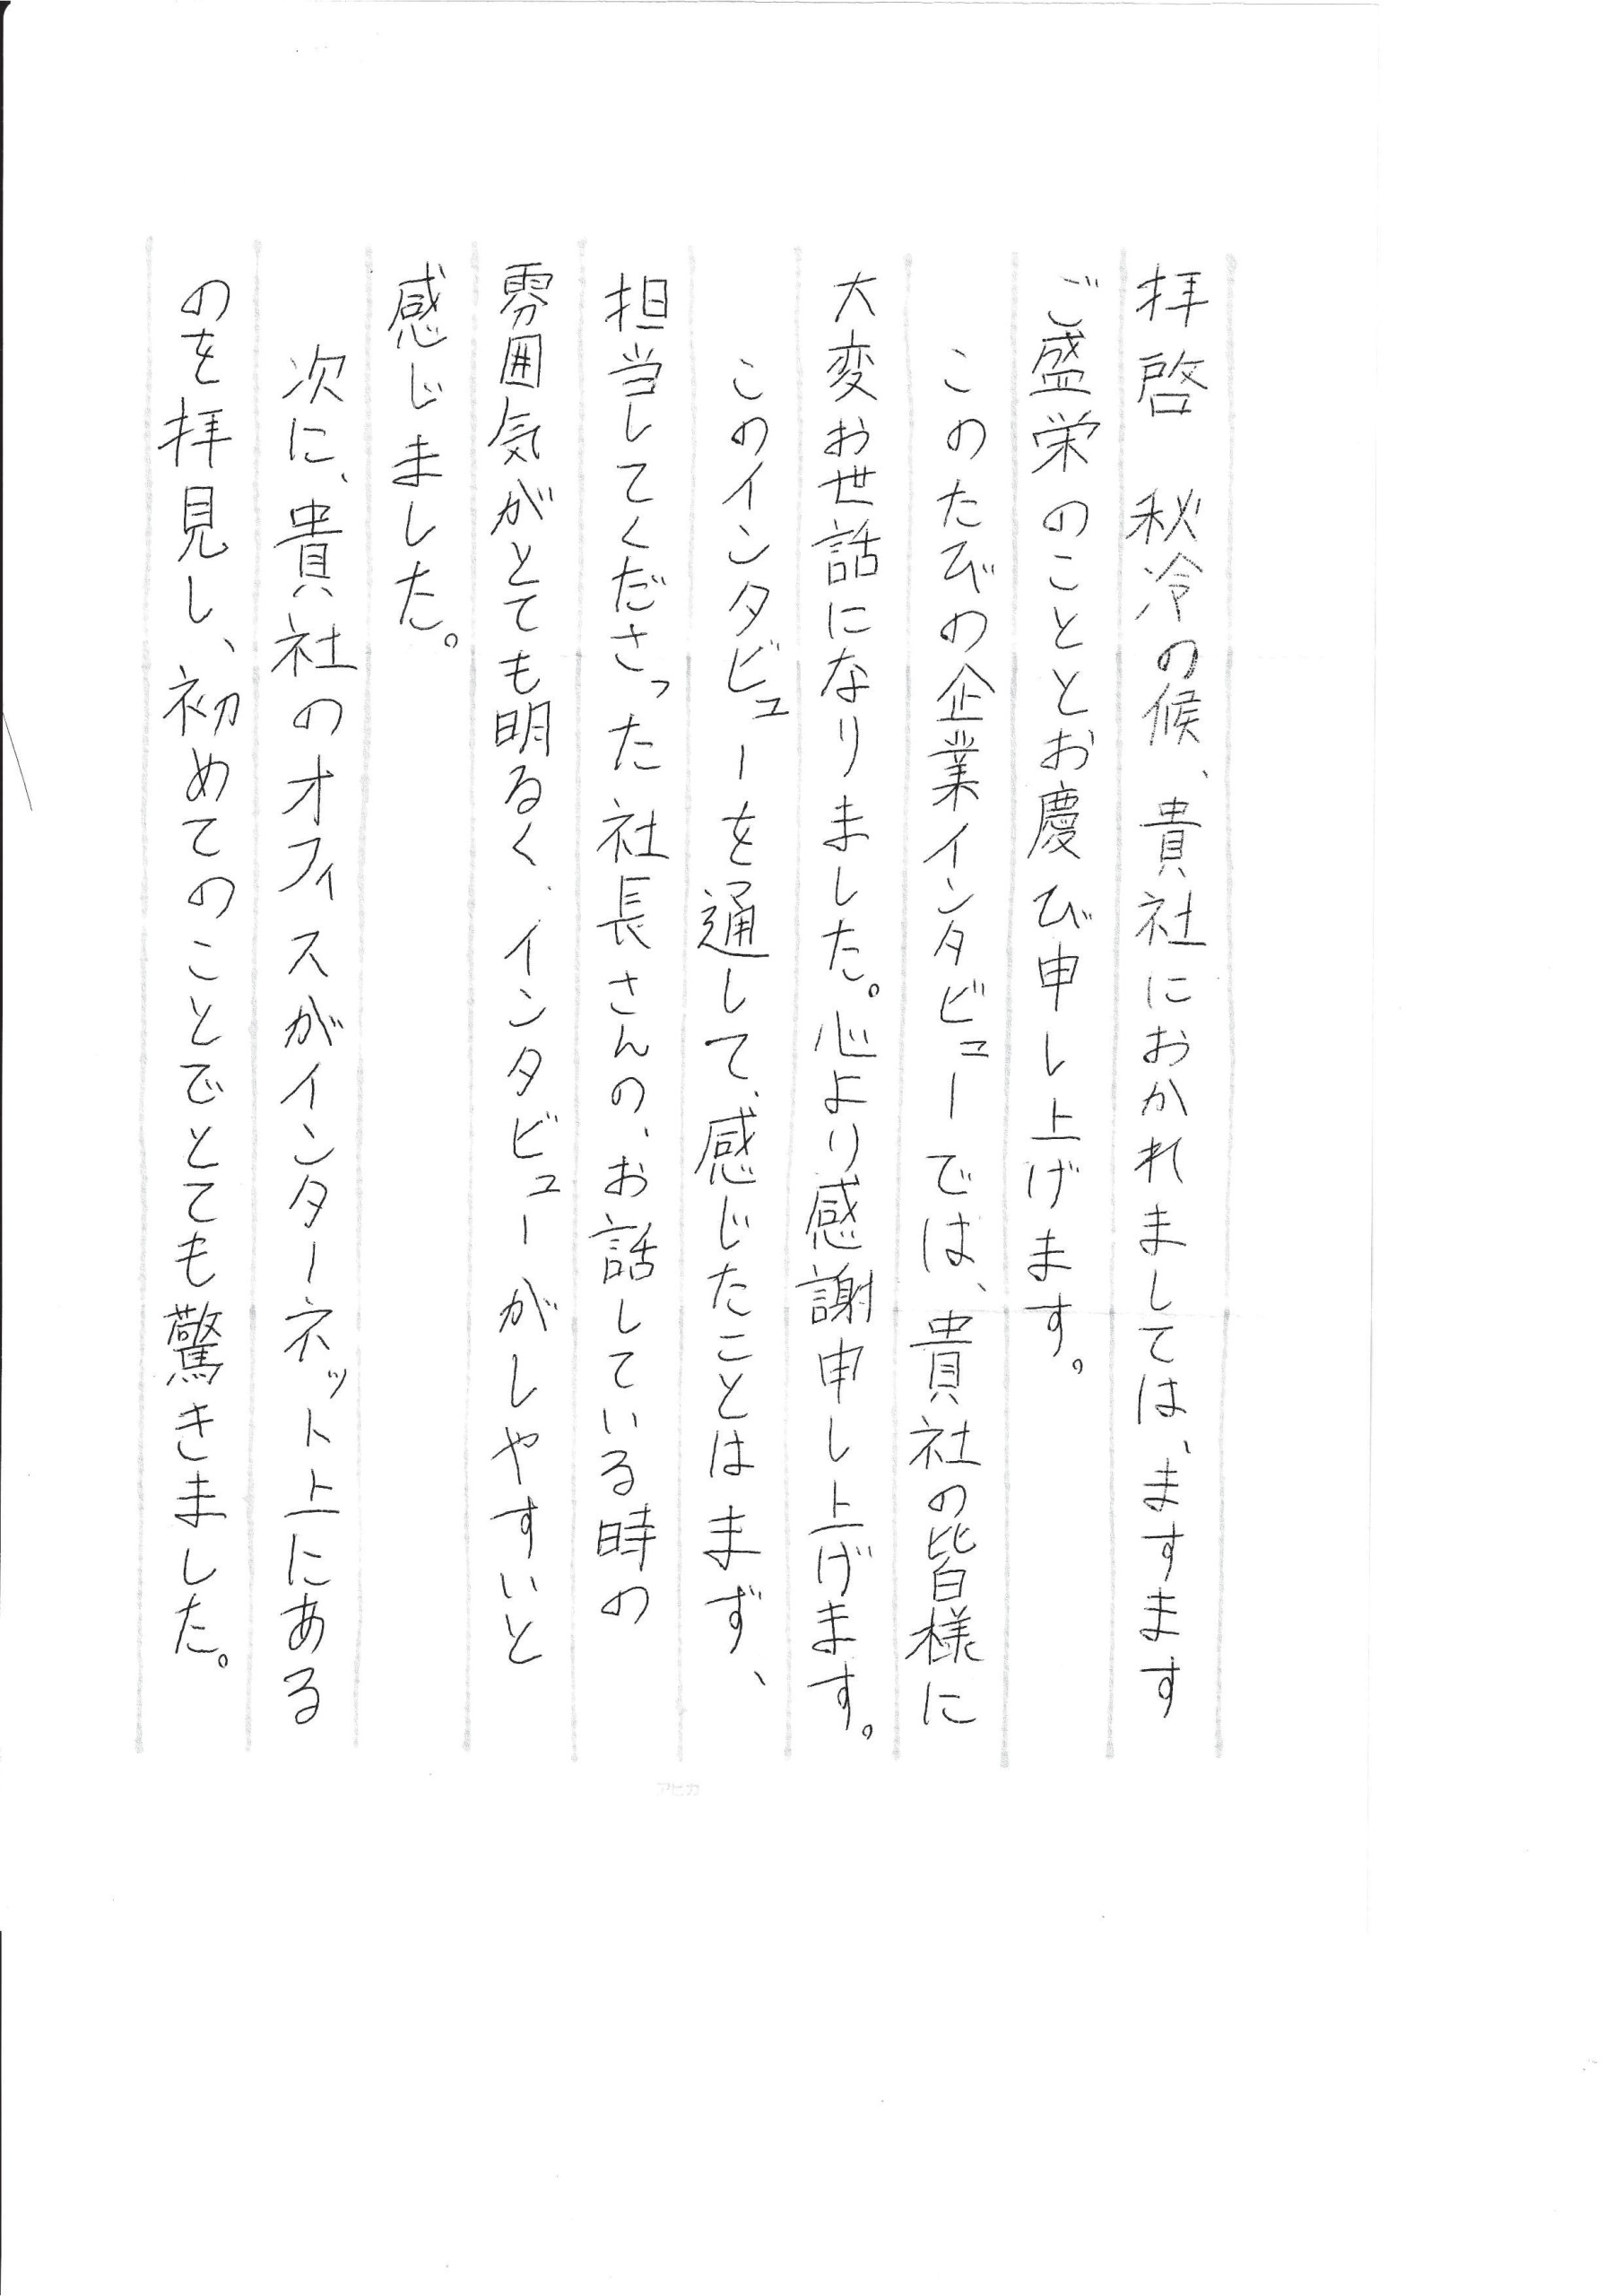 拝啓　秋冷の候、貴社におかれましては、ますます
ご盛栄のこととお慶び申し上げます。
このたびの企業インタビューでは、貴社の皆様に
大変お世話になりました。心より感謝申し上げます。
このインタビューを通して、感じたことはまず、
担当してくださった社長さんの、お話している時の
雰囲気がとても明るく、インタビューがしやすいと
感じました。
次に、貴社のオフィスがインターネット上にある
のを拝見し、初めてのことでとても驚きました。
アピカ